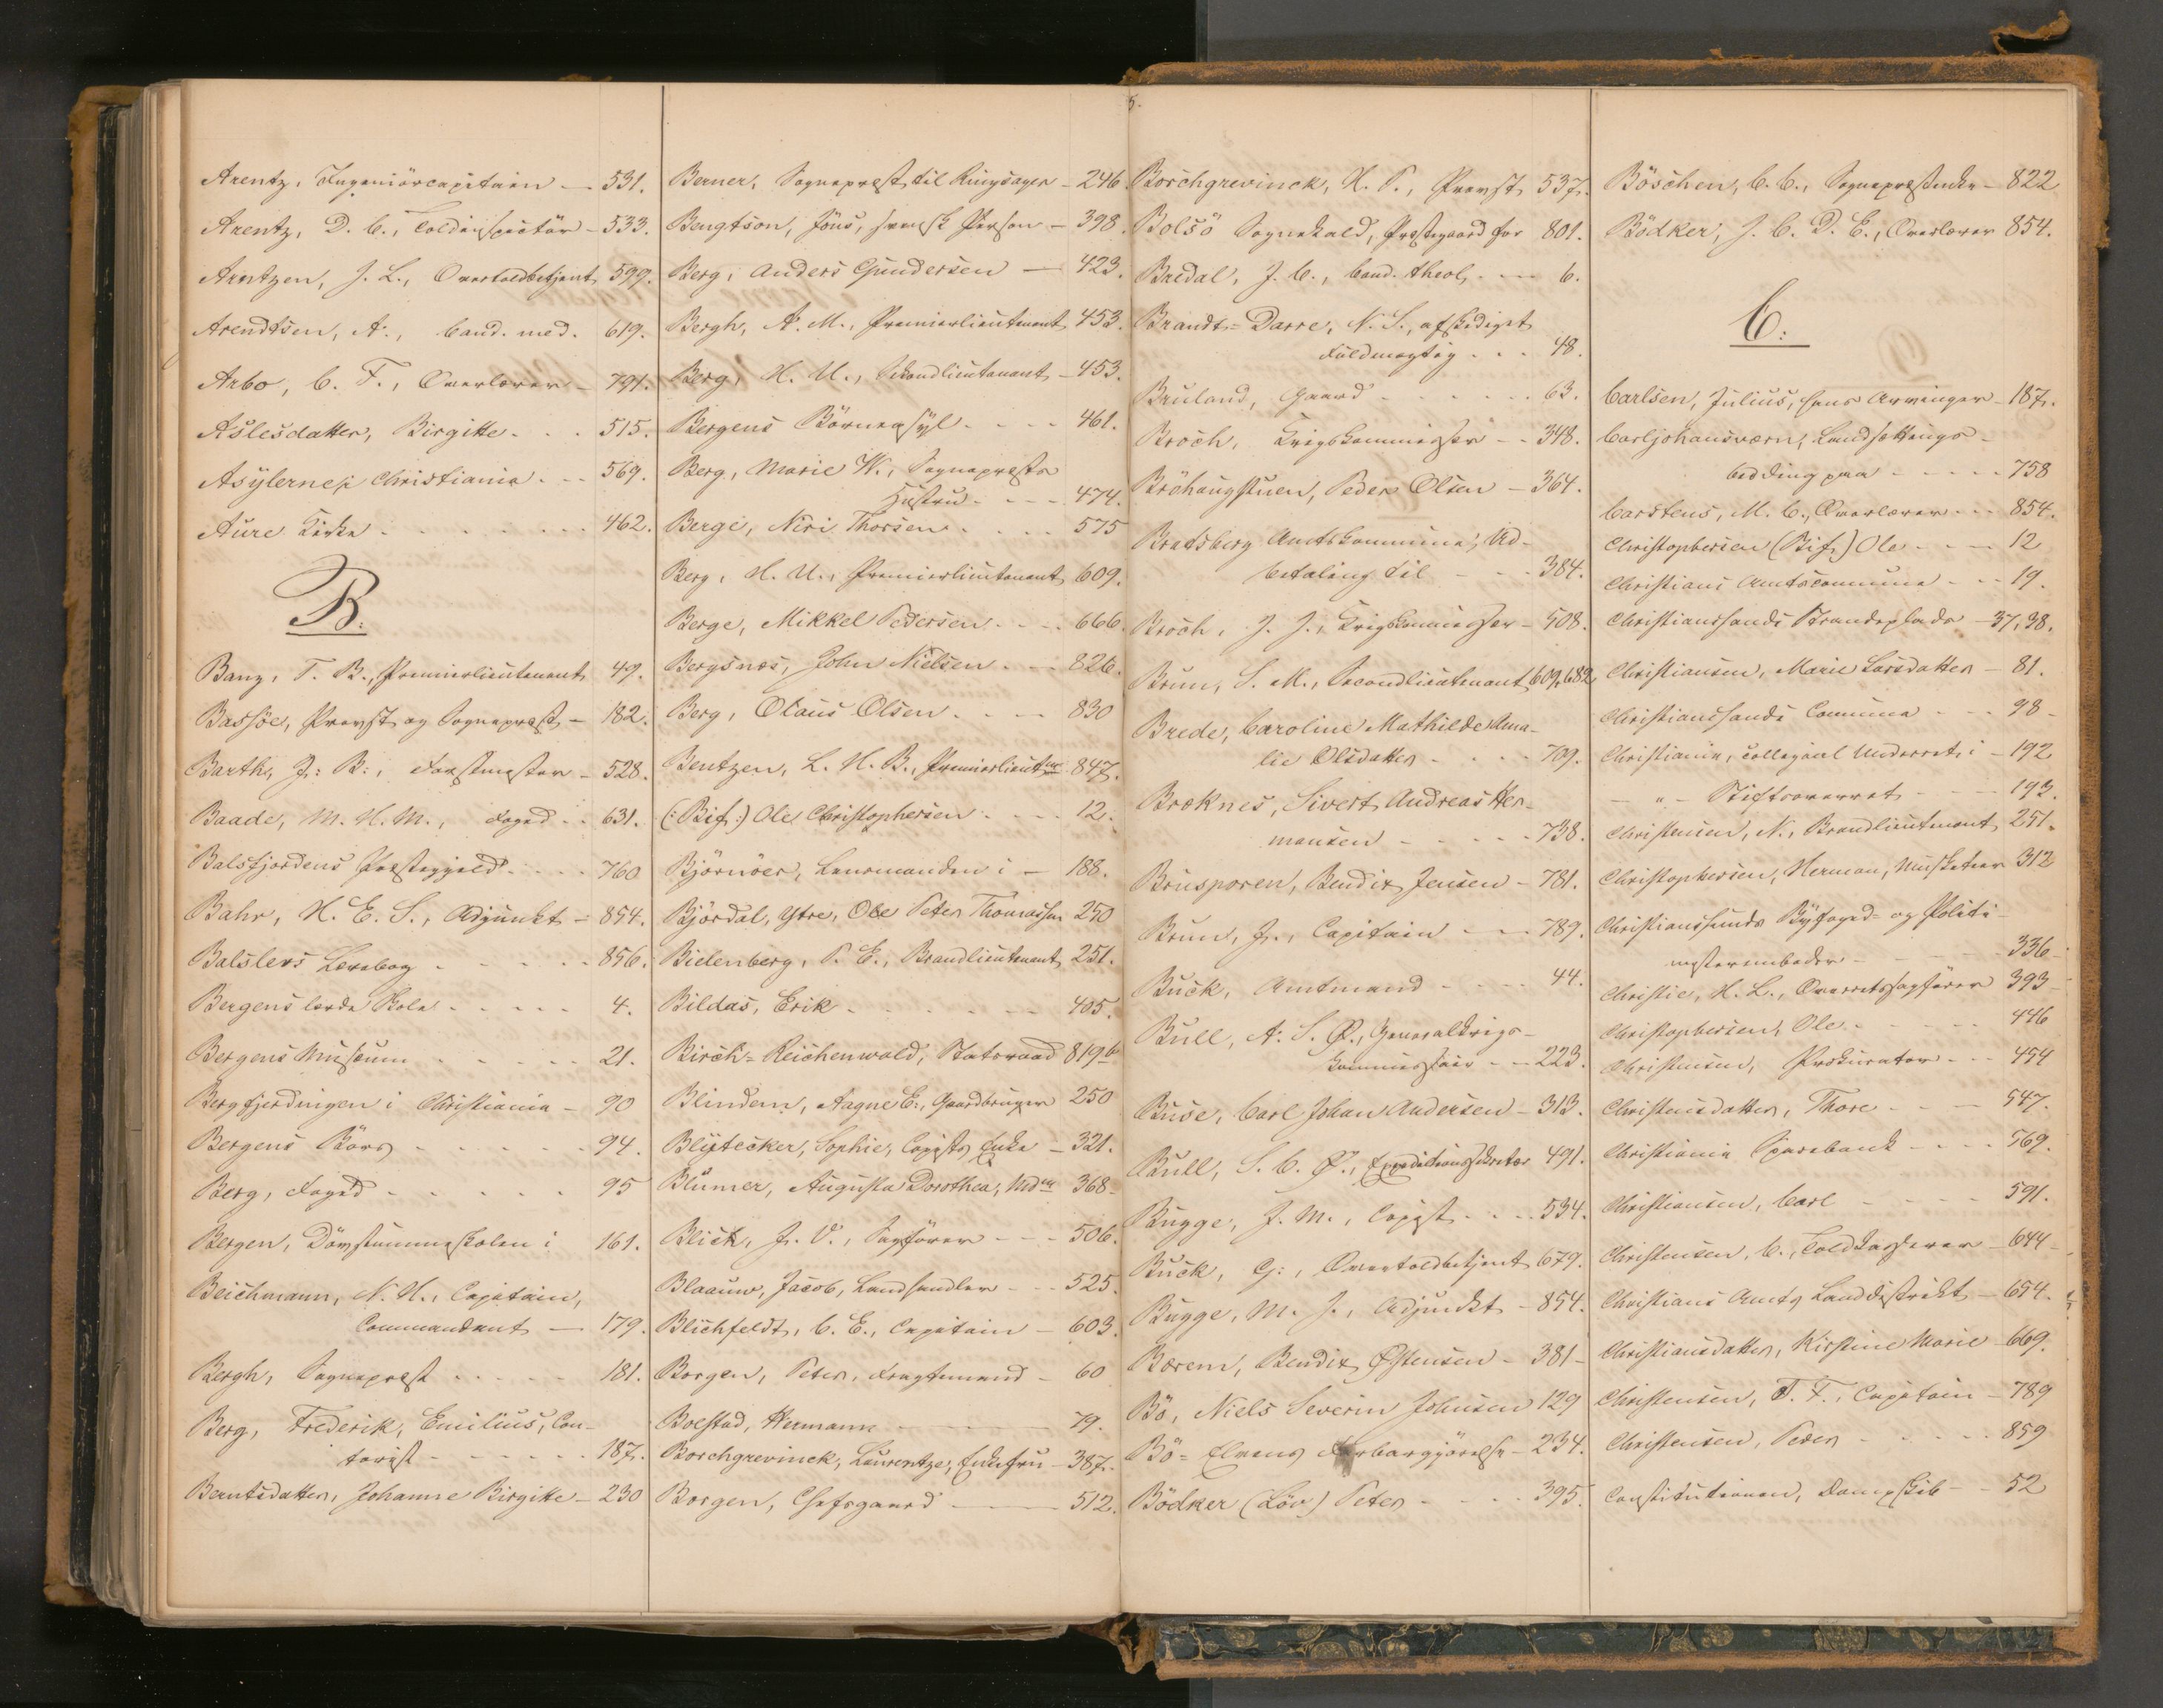 Arentz, Ingeniörcapitain — 531.
Arentz, D. C., Toldinspectör - 533.
Arntzen, J. L., Overtoldbetjent 599.
Arendtsen, A., Cand. med. 619.
Arbo, C. F., Overlærer - 791.
Aslesdatter, Birgitte . . . 515.
Asylerne i Christiania . . . 569.
Aure Kirke . . . . . . . 462.
B.
Bang, T. B., Premierlieutenant 49.
Bassöe, Provst og Sognepræst - 182.
Barth, J. B., Forstmester - 528.
Baade, M. H. M., Foged . . 631.
Balsfjordens Præstegjeld . . . 760
Bahr, H. E. S., Adjunkt - 854.
Balslevs Lærebog . . . . . 856.
Bergens lærde Skole . . . . . 4.
Bergens Museum . . . . . 21.
Bergfjerdingen i Christiania - 90
Bergens Börs . . . . . . 94.
Berg, Foged . . . . . . 95
Bergen, Dövstummeskolen i 161.
Beichmann, N. H., Capitain,
Commandant — 179.
Bergh, Sognepræst . . . . . 181.
Berg, Frederik, Emilius, Con-
torist . . . . . . 187.
Berntsdatter, Johanne Birgitte - 230
Berner, Sognepræst til Ringsager - 246
Bengtson, Jöns, svensk Person - 398.
Berg, Anders Gundersen — 423.
Bergh, A. M., Premierlieutenant 453.
Berg, H. U., Sekondlieutenant - 453.
Bergens Börneasyl . . . . 461.
Berg, Marie W., Sognepræsts
Hustru . . . . 474.
Berge, Niri Thorsen . . . . 575
Berg, H. U., Premierlieutenant 609.
Berge, Mikkel Pedersen . . . . 666.
Bergsnæs, John Nielsen . . . 826.
Berg, Olaus Olsen . . . . 830
Bentzen, L. H. B., Premierlieutnt 847.
(:Bif:) Ole Christophersen . . . . 12.
Björnöer, Lensmanden i - 188.
Björdal, Ytre, Ole Peter Thomassen 250
Bielenberg, P. E., Brandlieutenant 251.
Bildaas, Erik . . . . . . 405.
Birch-Reichenwald, Statsraad 819b
Blindem, Aagne E., Gaardbruger 250
Blytecker, Sophie, Copists Enke - 321.
Blumer, Augusta Dorothea, Mdm 368
Blich, J. V., Sagförer - - - 506.
Blaauw, Jacob, Landhandler - - 525.
Blichfeldt, C. E., Capitain - 603.
Borgen, Peter, Fragtemand - 60
Bolstad, Hermann - - - - 79.
Borchgrevinck, Laurentze, Enkefru - 387.
Borgen, Chefsgaard - - - 512.
5.
Borchgrevinck, H. P., Provst 537.
Bolsö Sognekald, Præstegaard for 801.
Bredal, J. C., Cand. theol. . . - 6.
Brandt-Darre, N. S., afskediget
Fuldmægtig . . . 48.
Bruland, Gaard . . . . . . 63.
Broch, Krigskommissær - - 348.
Bröhaugstuen, Peder Olsen - 364.
Bratsberg Amtskommune, Ud-
betaling til - - - 384.
Broch, J. J., Krigskommissær - 508.
Brun, S. M., Secondlieutenant 609, 682
Brede, Caroline Mathilde Ama-
lie Olsdatter . . . . 709.
Bræknes, Sivert Andreas Her-
mansen - - - - 738.
Brusporen, Bendix Jensen - 781.
Brun, J., Capitain - - - 789.
Buck, Amtmand - - - - 44.
Bull, A. S. Ø., Generalkrigs-
kommissair - - 223.
Buse, Carl Johan Andersen - 313.
Bull, S. C. Ø., Expeditionssekretær 491.
Bugge, J. M., Copist . . . 534.
Buck, G., Overtoldbetjent 679.
Bugge, M. J., Adjunkt - 854.
Bærem, Bendix Østensen - 381
Bö, Niels Severin Johnsen 129
Bö-Elvens Farbargjörelse - 234.
Bödker (Löv) Peter - . . . 395.
Böschen, C. C., Sognepræstenke - 822
Bödker, J. C. D. E., Overlærer 854.
C.
Carlsen, Julius, hans Arvinger - 187.
Carljohansværn, Landsættings-
bedding paa - - - - 758
Carstens, M. C., Overlærer - - 854.
Christophersen (Bif) Ole - - - 12
Christians Amtscommune - - - 19.
Christianssands Brandsplads - 37, 38.
Christiansen, Marie Larsdatter - 81.
Christianssands Commune - - - 98
Christiania, collegial Underret i - 192
- " - Stiftsoverret - - - 193.
Christensen, N., Brandlieutenant 251.
Christophersen, Herman, Musketeer 312
Christianssunds Byfoged- og Politi-
mesterembeder - - - - 336
Christie, H. L., Overretssagförer 393
Christophersen, Ole - - - - 446
Christensen, Prokurator - - - 454
Christensdatter, Thore - - - 547.
Christiania Sparebank - - - - 569.
Christiansen, Carl - - - - 591.
Christensen, C., Toldkasserer - 644
Christians Amts Landdistrikt - 654.
Christiansdatter, Kirstine Marie - 669.
Christensen, T. F., Capitain - 789
Christensen, Peder - - - - 859
Constitutionen, Dampskib - - 52